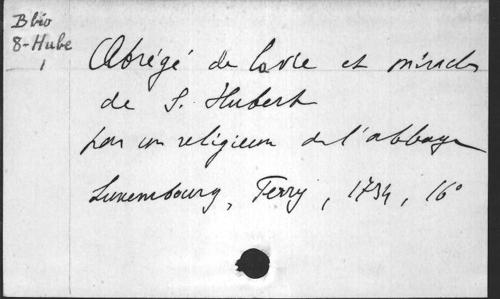 Bbio
8-Hube
1
Abrégé de la vie et miracles
de S. Hubert
par un religieux de l'abbaye
Luxembourg, Ferry, 1734, 16°